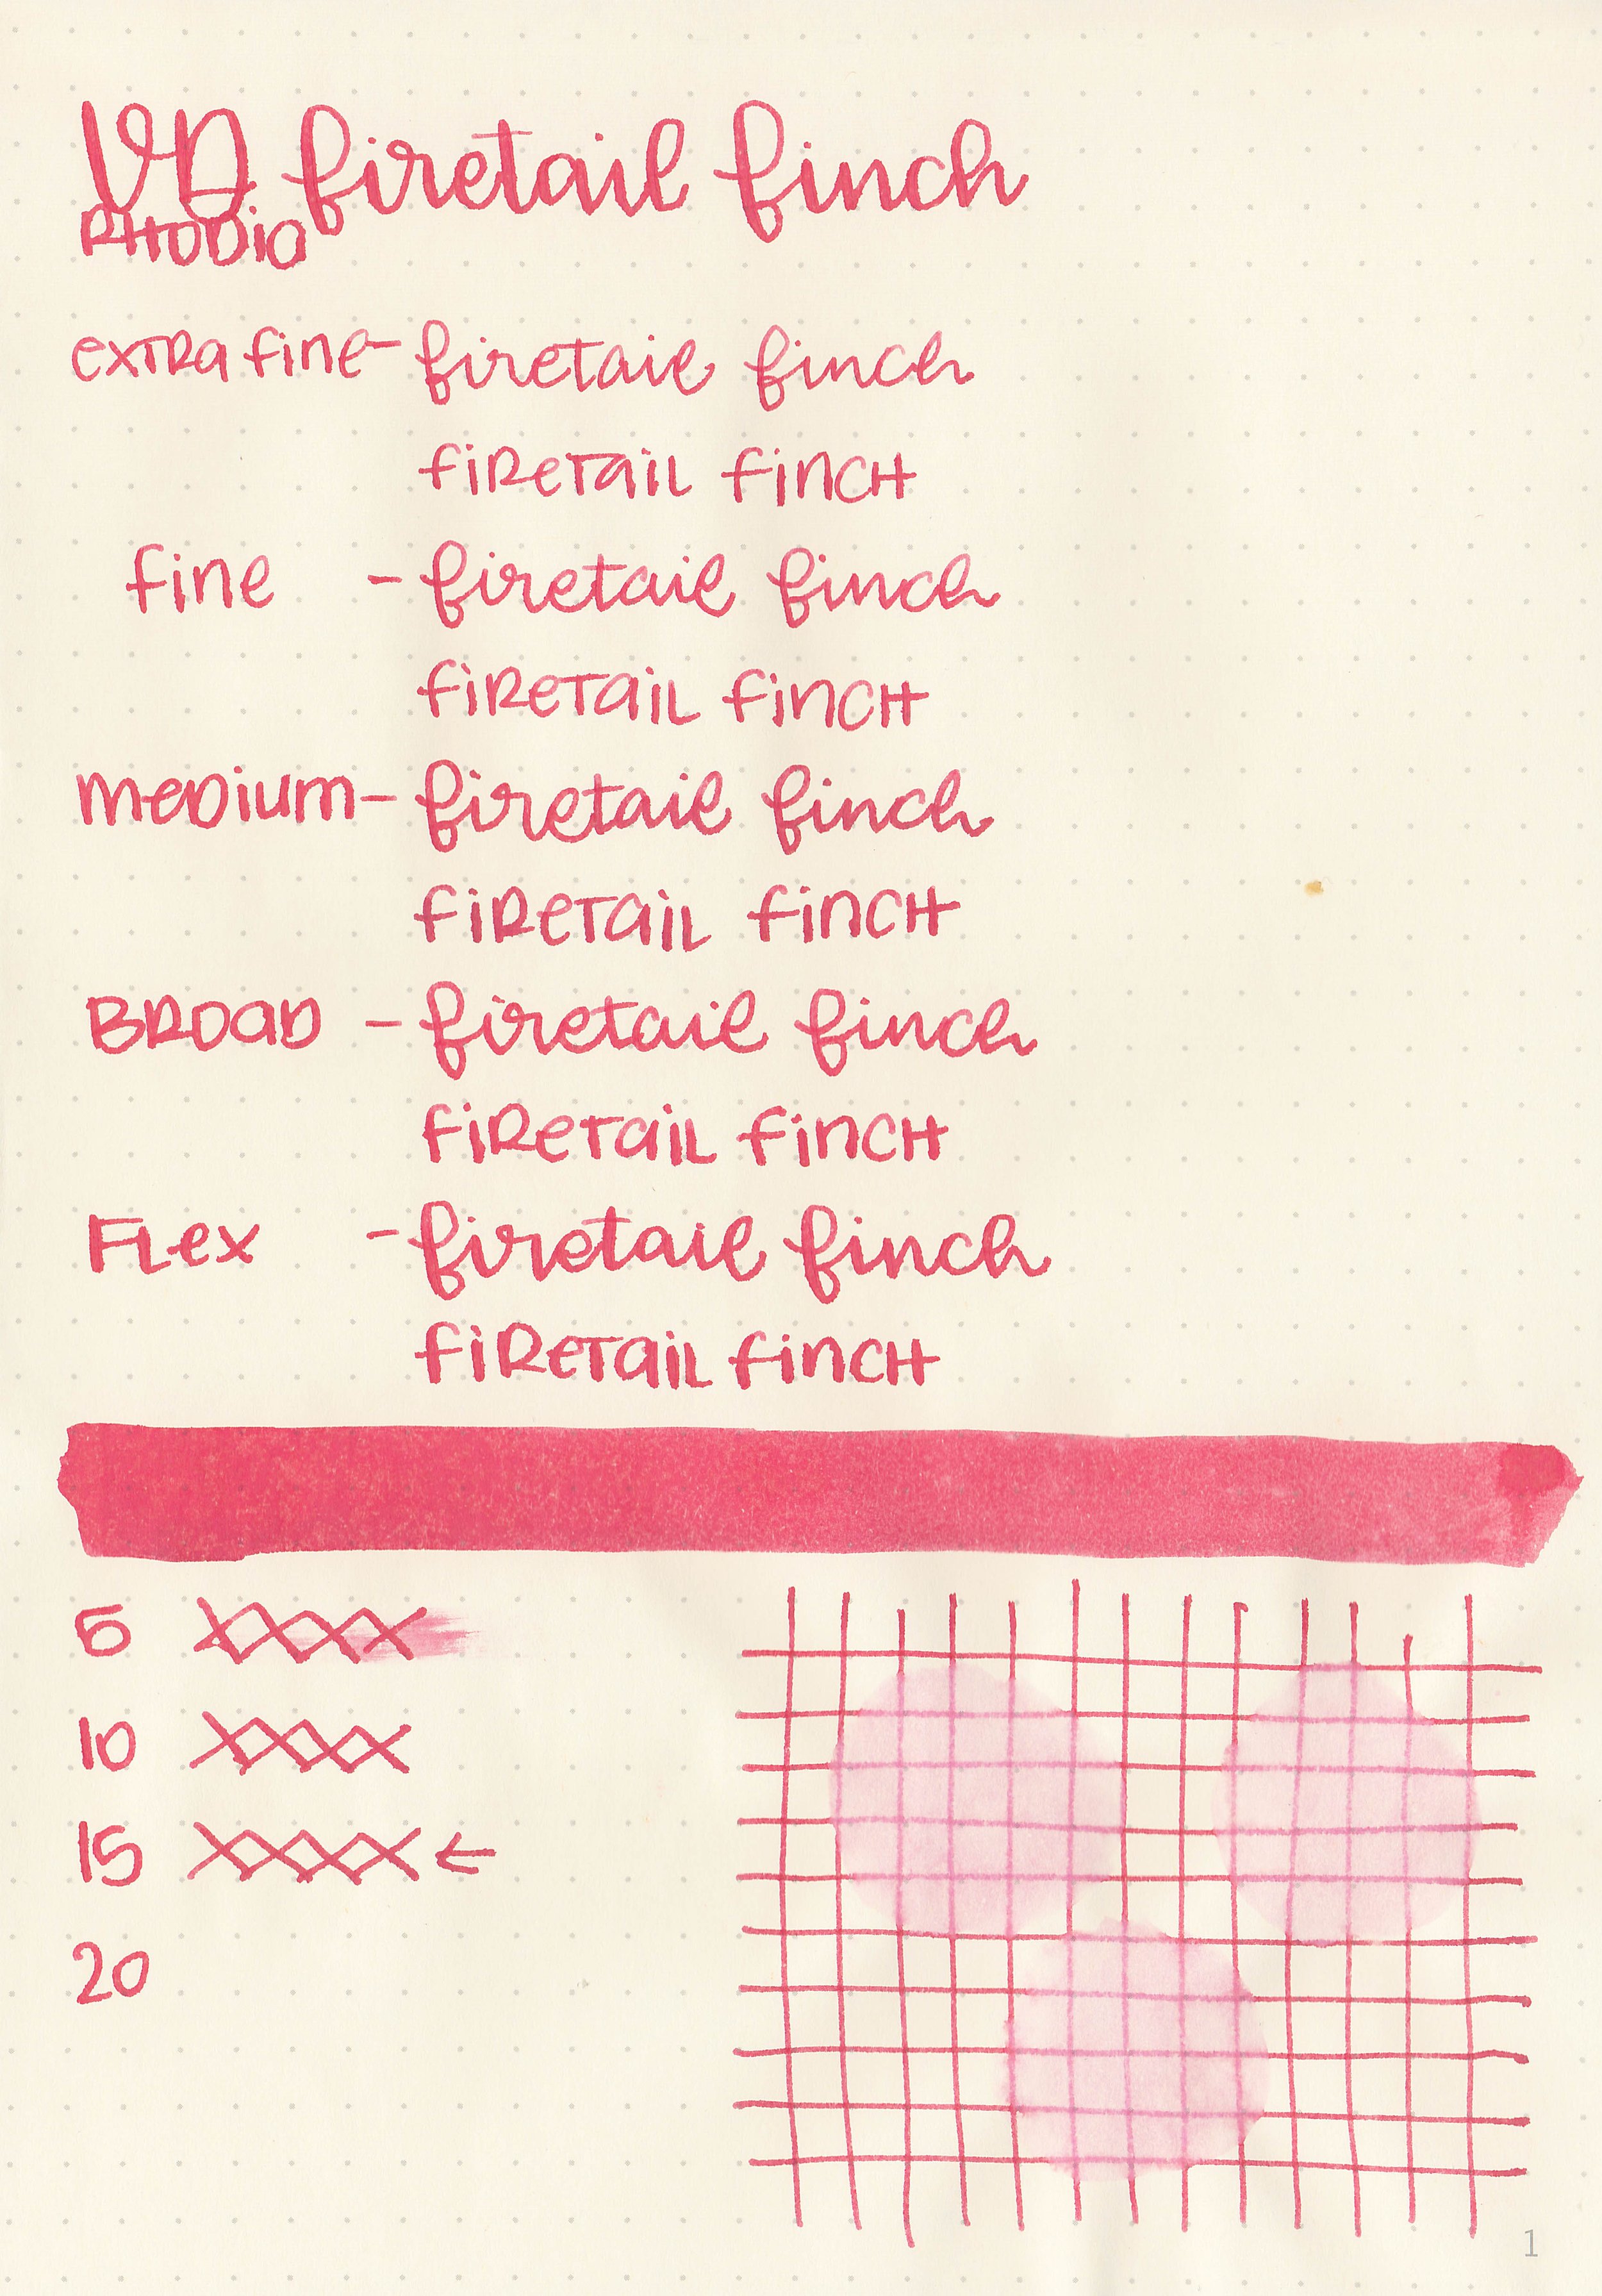 VD firetail finch
RHODIO
extra fine - firetail finch
firetail finch
fine - firetail finch
firetail finch
medium - firetail finch
firetail finch
Broad - firetail finch
firetail finch
Flex - firetail finch
firetail finch
5 XXXX
10 XXXX
15 XXXX ←
20
1